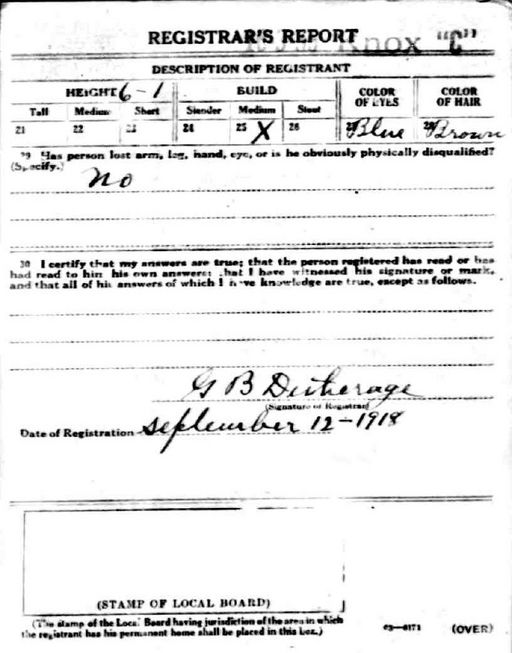 REGISTRAR'S REPORT
Knox "C"
DESCRIPTION OF REGISTRANT
HEIGHT 6-1 BUILD COLOR OF EYES COLOR OF HAIR
Tall Medium Short Slender Medium Stout
21 22 23 24 25 X 26 27 Blue 28 Brown
29 Has person lost arm, leg, hand, eye, or is he obviously physically disqualified?
(Specify.) No
30 I certify that my answers are true; that the person registered has read or has
had read to him his own answers; that I have witnessed his signature or mark,
and that all of his answers of which I have knowledge are true, except as follows.
G B Ditherage
(Signature of Registrar)
Date of Registration September 12-1918
(STAMP OF LOCAL BOARD)
(The stamp of the Local Board having jurisdiction of the area in which
the registrant has his permanent home shall be placed in this box.)
03-6171 (OVER)